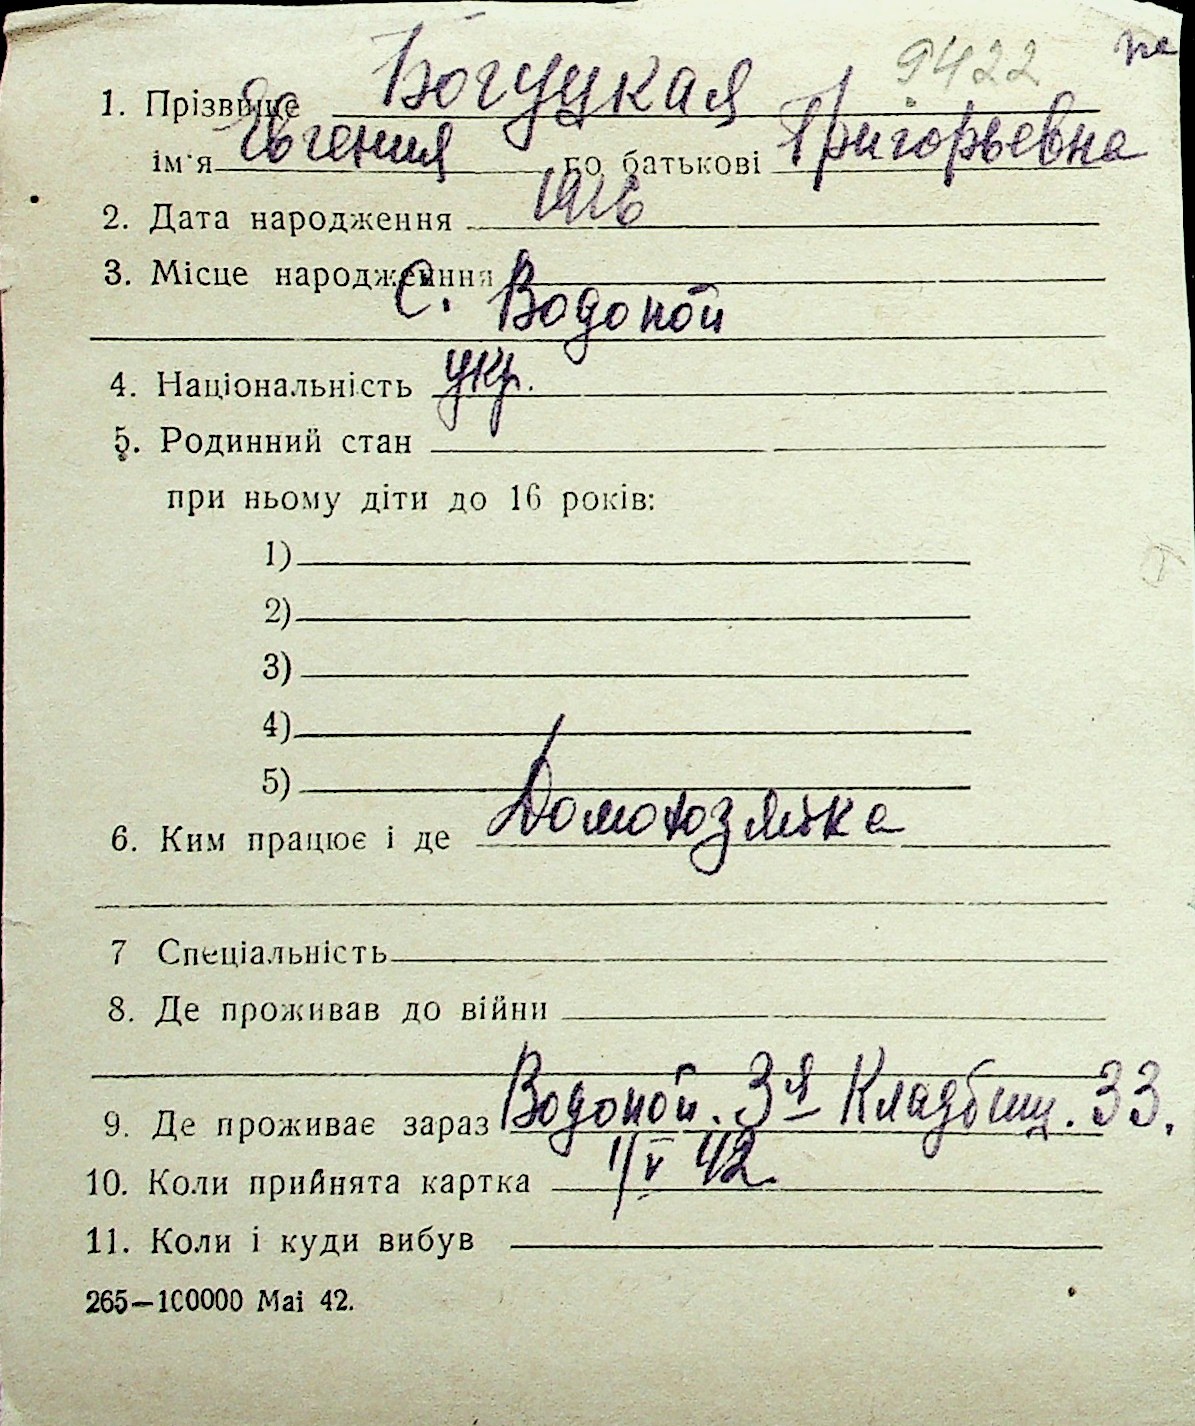 9422
1. Прізвище Богуцкая
ім'я Евгения по батькові Григорьевна
2. Дата народження 1926
3. Місце народження
С. Водопой
4. Національність укр.
5. Родинний стан
при ньому діти до 16 років:
1)
2)
3)
4)
5)
6. Ким працює і де Домохозяйка
7 Спеціальність
8. Де проживав до війни
9. Де проживає зараз Водопой. 3я Кладбищ. 33.
10. Коли прийнята картка 1/V 42.
11. Коли і куди вибув
265—100000 Mai 42.